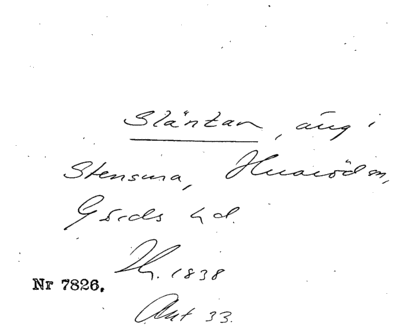 Släntan, äng i
Stensma, Huaröd sn,
Gärds hd.
Th. 1838
Nr 7826.
Akt 33.